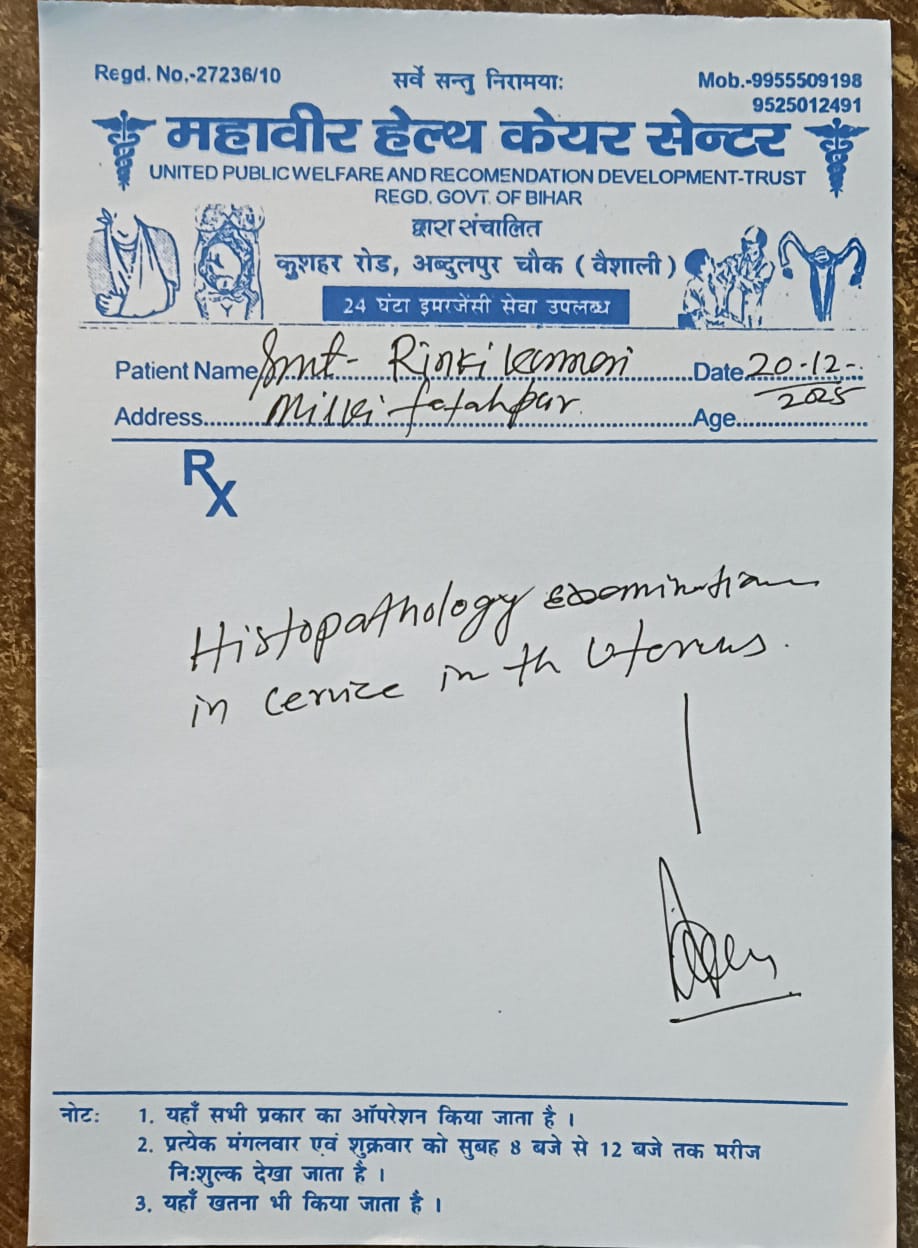 Regd. No.-27236/10
सर्वे सन्तु निरामयाः
Mob.-9955509198
9525012491
महावीर हेल्थ केयर सेन्टर
UNITED PUBLIC WELFARE AND RECOMENDATION DEVELOPMENT-TRUST
REGD. GOVT. OF BIHAR
द्वारा संचालित
कुशहर रोड, अब्दुलपुर चौक ( वैशाली )
24 घंटा इमरजेंसी सेवा उपलब्ध
Patient Name Smt- Rinki kumari Date 20-12-2025
Address Milki fatahpur Age
Rx
Histopathology examination
in cervice in th Uterus.
नोटः 1. यहाँ सभी प्रकार का ऑपरेशन किया जाता है ।
2. प्रत्येक मंगलवार एवं शुक्रवार को सुबह 8 बजे से 12 बजे तक मरीज
निःशुल्क देखा जाता है ।
3. यहाँ खतना भी किया जाता है ।